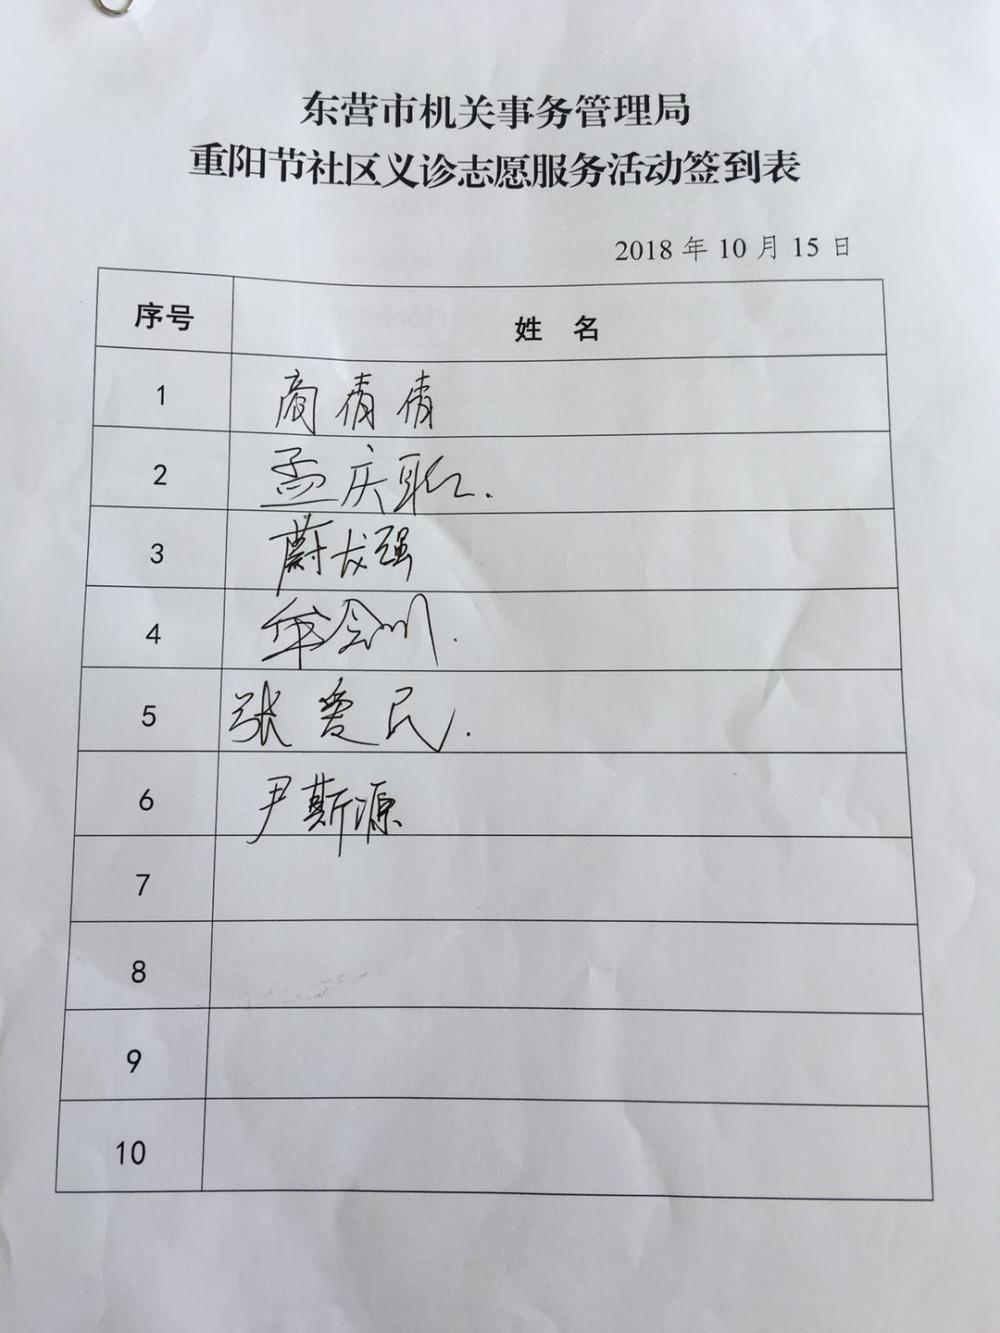 东营市机关事务管理局
重阳节社区义诊志愿服务活动签到表
2018 年 10 月 15 日
序号 姓 名
1 商倩倩
2 孟庆
3 蔚龙强
4
5 张爱民.
6 尹斯源
7
8
9
10